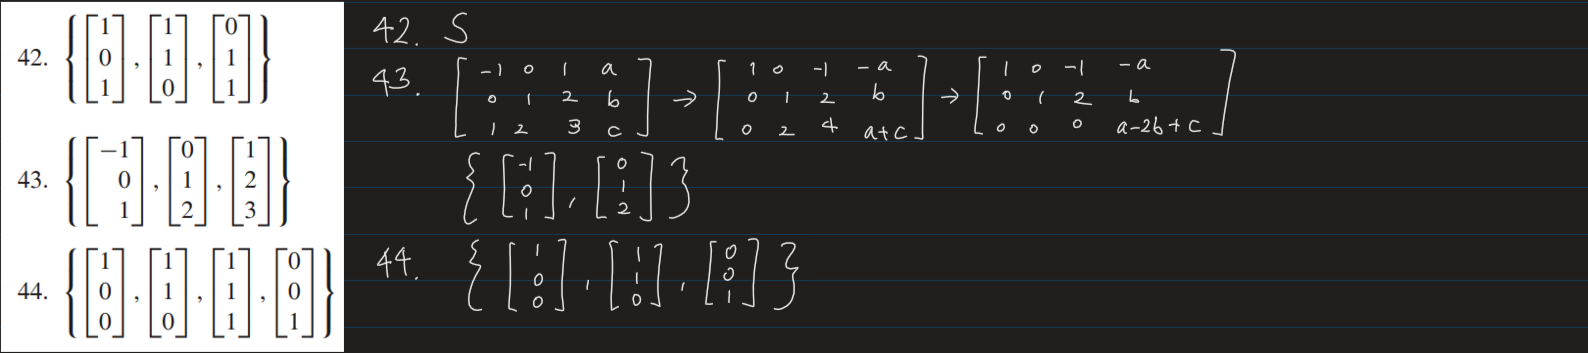 42. { [1 0 1], [1 1 0], [0 1 1] }
43. { [−1 0 1], [0 1 2], [1 2 3] }
44. { [1 0 0], [1 1 0], [1 1 1], [0 0 1] }
42. S
43. [-1 0 1 a; 0 1 2 b; 1 2 3 c] → [1 0 -1 -a; 0 1 2 b; 0 2 4 a+c] → [1 0 -1 -a; 0 1 2 b; 0 0 0 a-2b+c]
{ [-1 0 1], [0 1 2] }
44. { [1 0 0], [1 1 0], [0 0 1] }